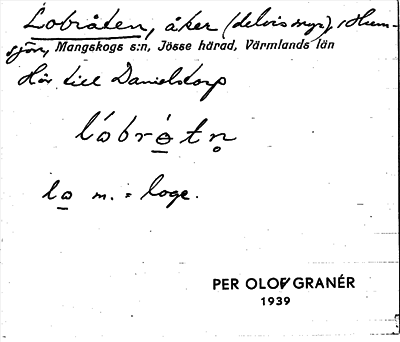 Lobråten, åker (delvis myr), Hum-
sjön, Mangskogs s:n, Jösse härad, Värmlands län
Hör till Danielstorp
lábrə̀tn̥
la̲ m. = loge.
PER OLOF GRANÉR
1939